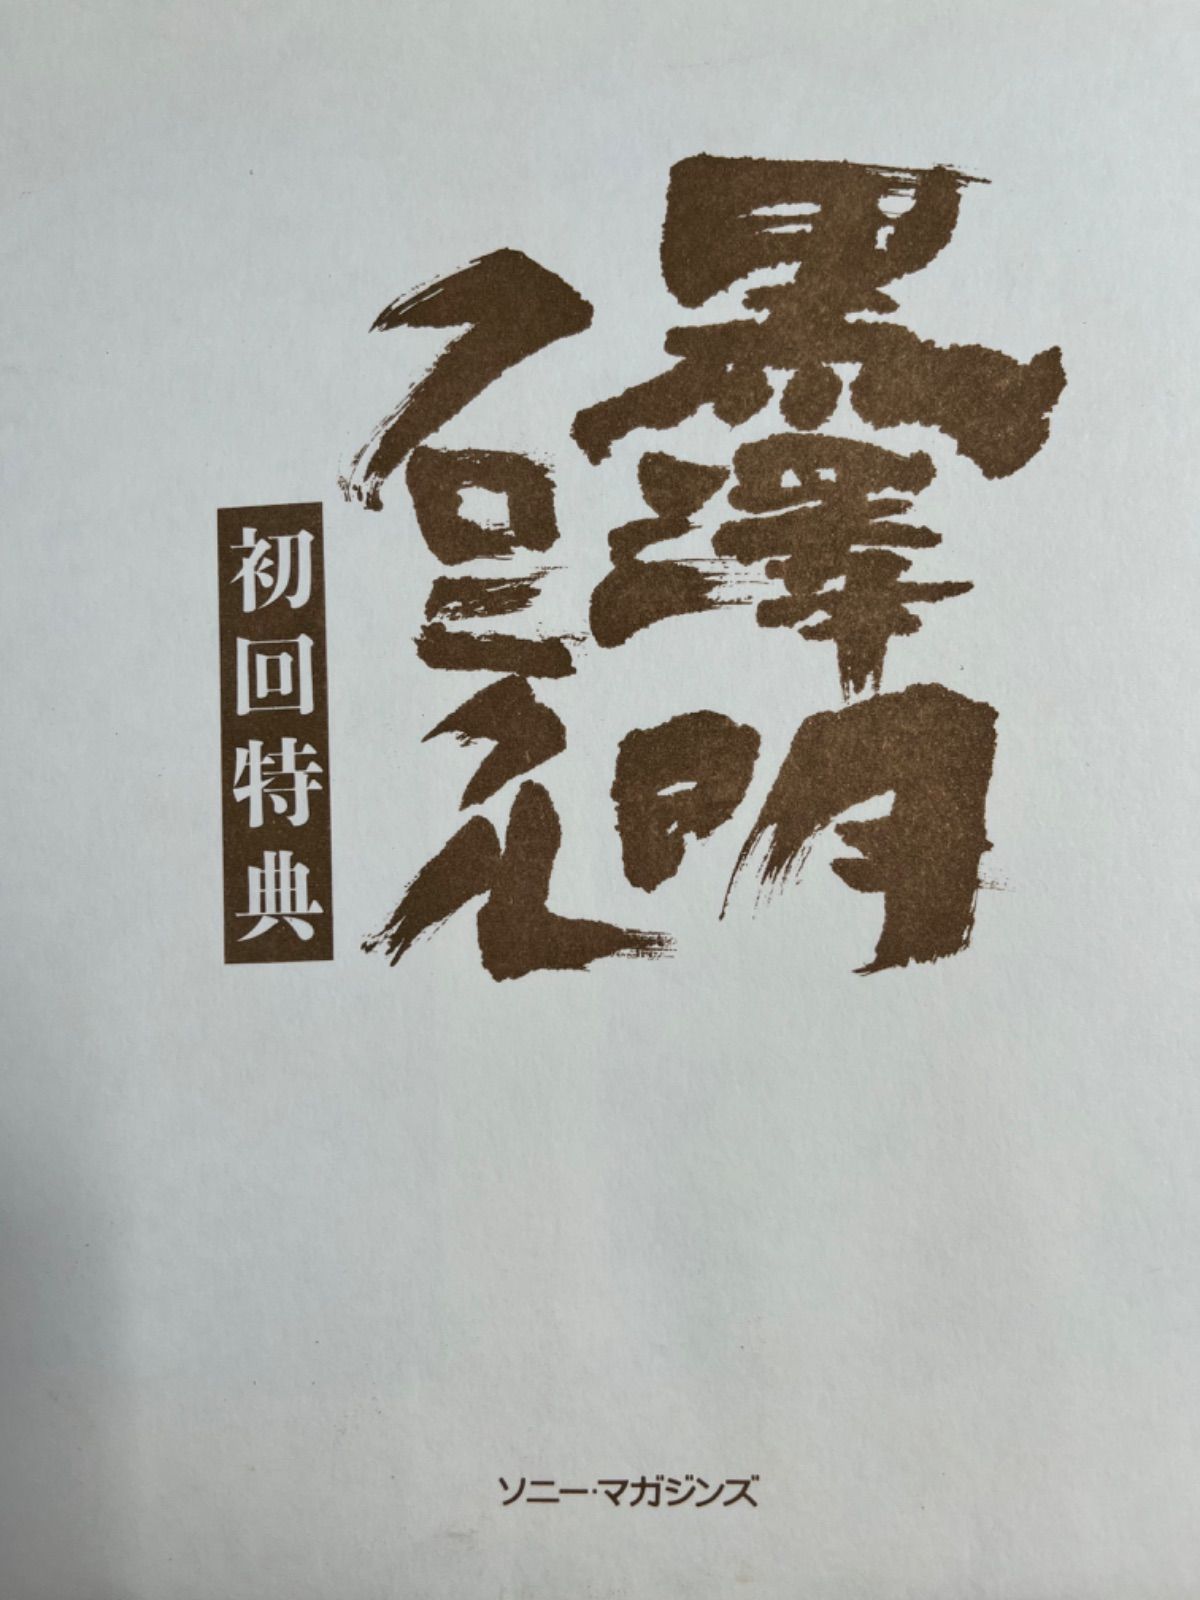 黒澤明
クロニクル
初回特典
ソニー・マガジンズ